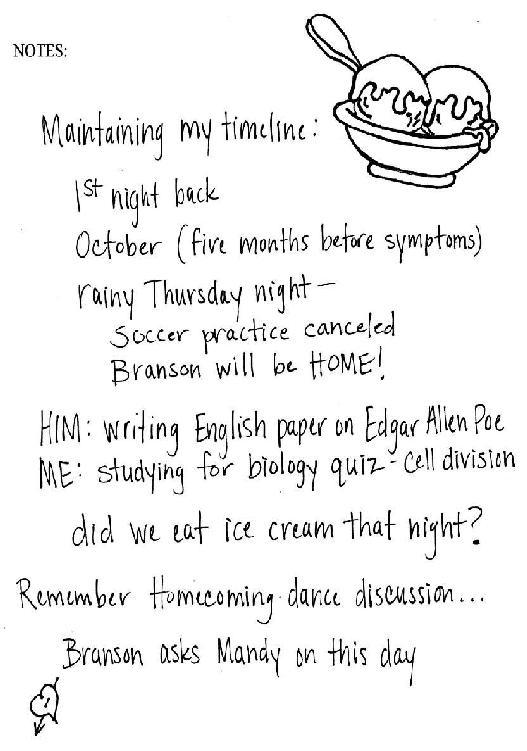 NOTES:
Maintaining my timeline:
1st night back
October (five months before symptoms)
rainy Thursday night –
Soccer practice canceled
Branson will be HOME!
HIM: writing English paper on Edgar Allen Poe
ME: studying for biology quiz - cell division
did we eat ice cream that night?
Remember Homecoming dance discussion...
Branson asks Mandy on this day